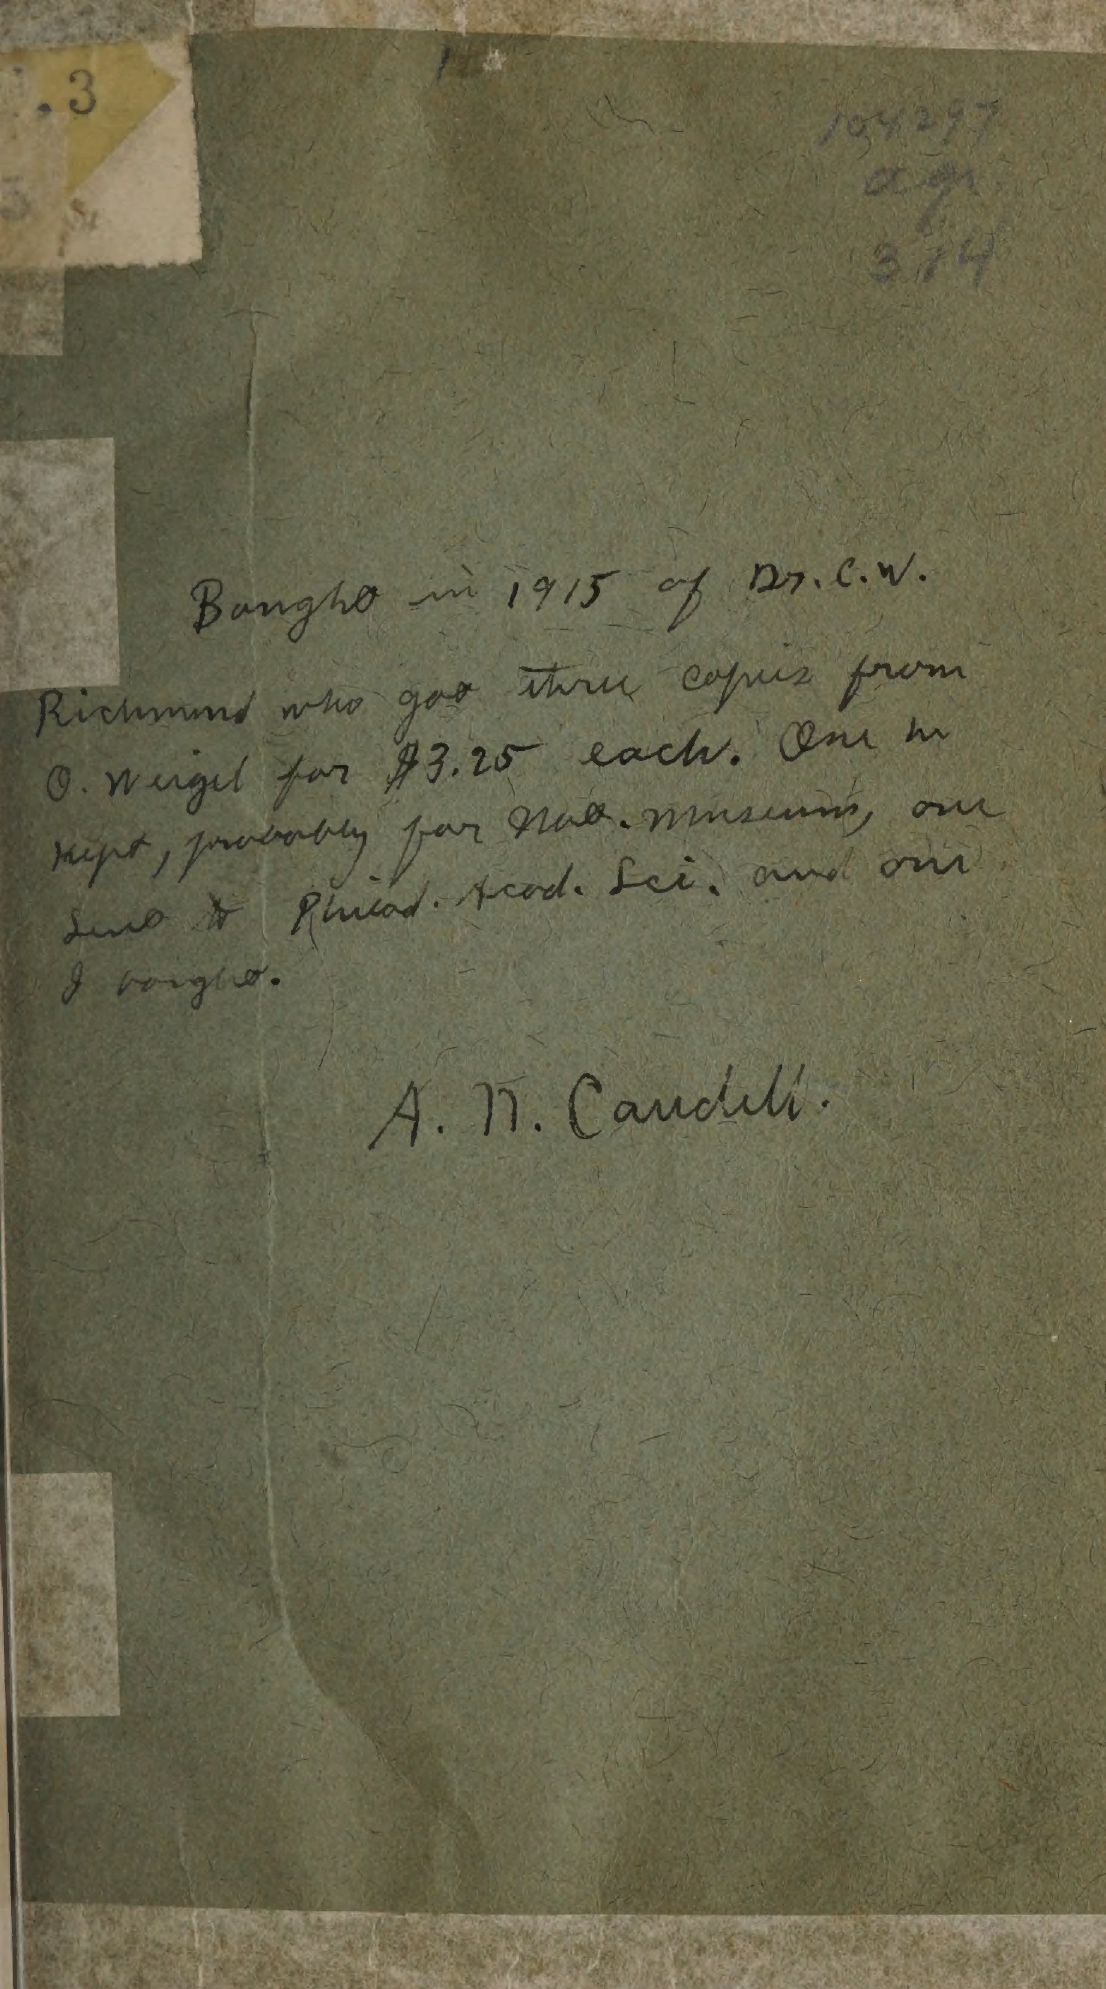 .3
5
104297
agr
374
Bought in 1915 of Dr. C. W.
Richmond who got three copies from
O. Weigel for $3.25 each. One he
kept, probably for Nat. Museum, one
sent to Philad. Acad. Sci. and one
I bought.
A. N. Caudell.